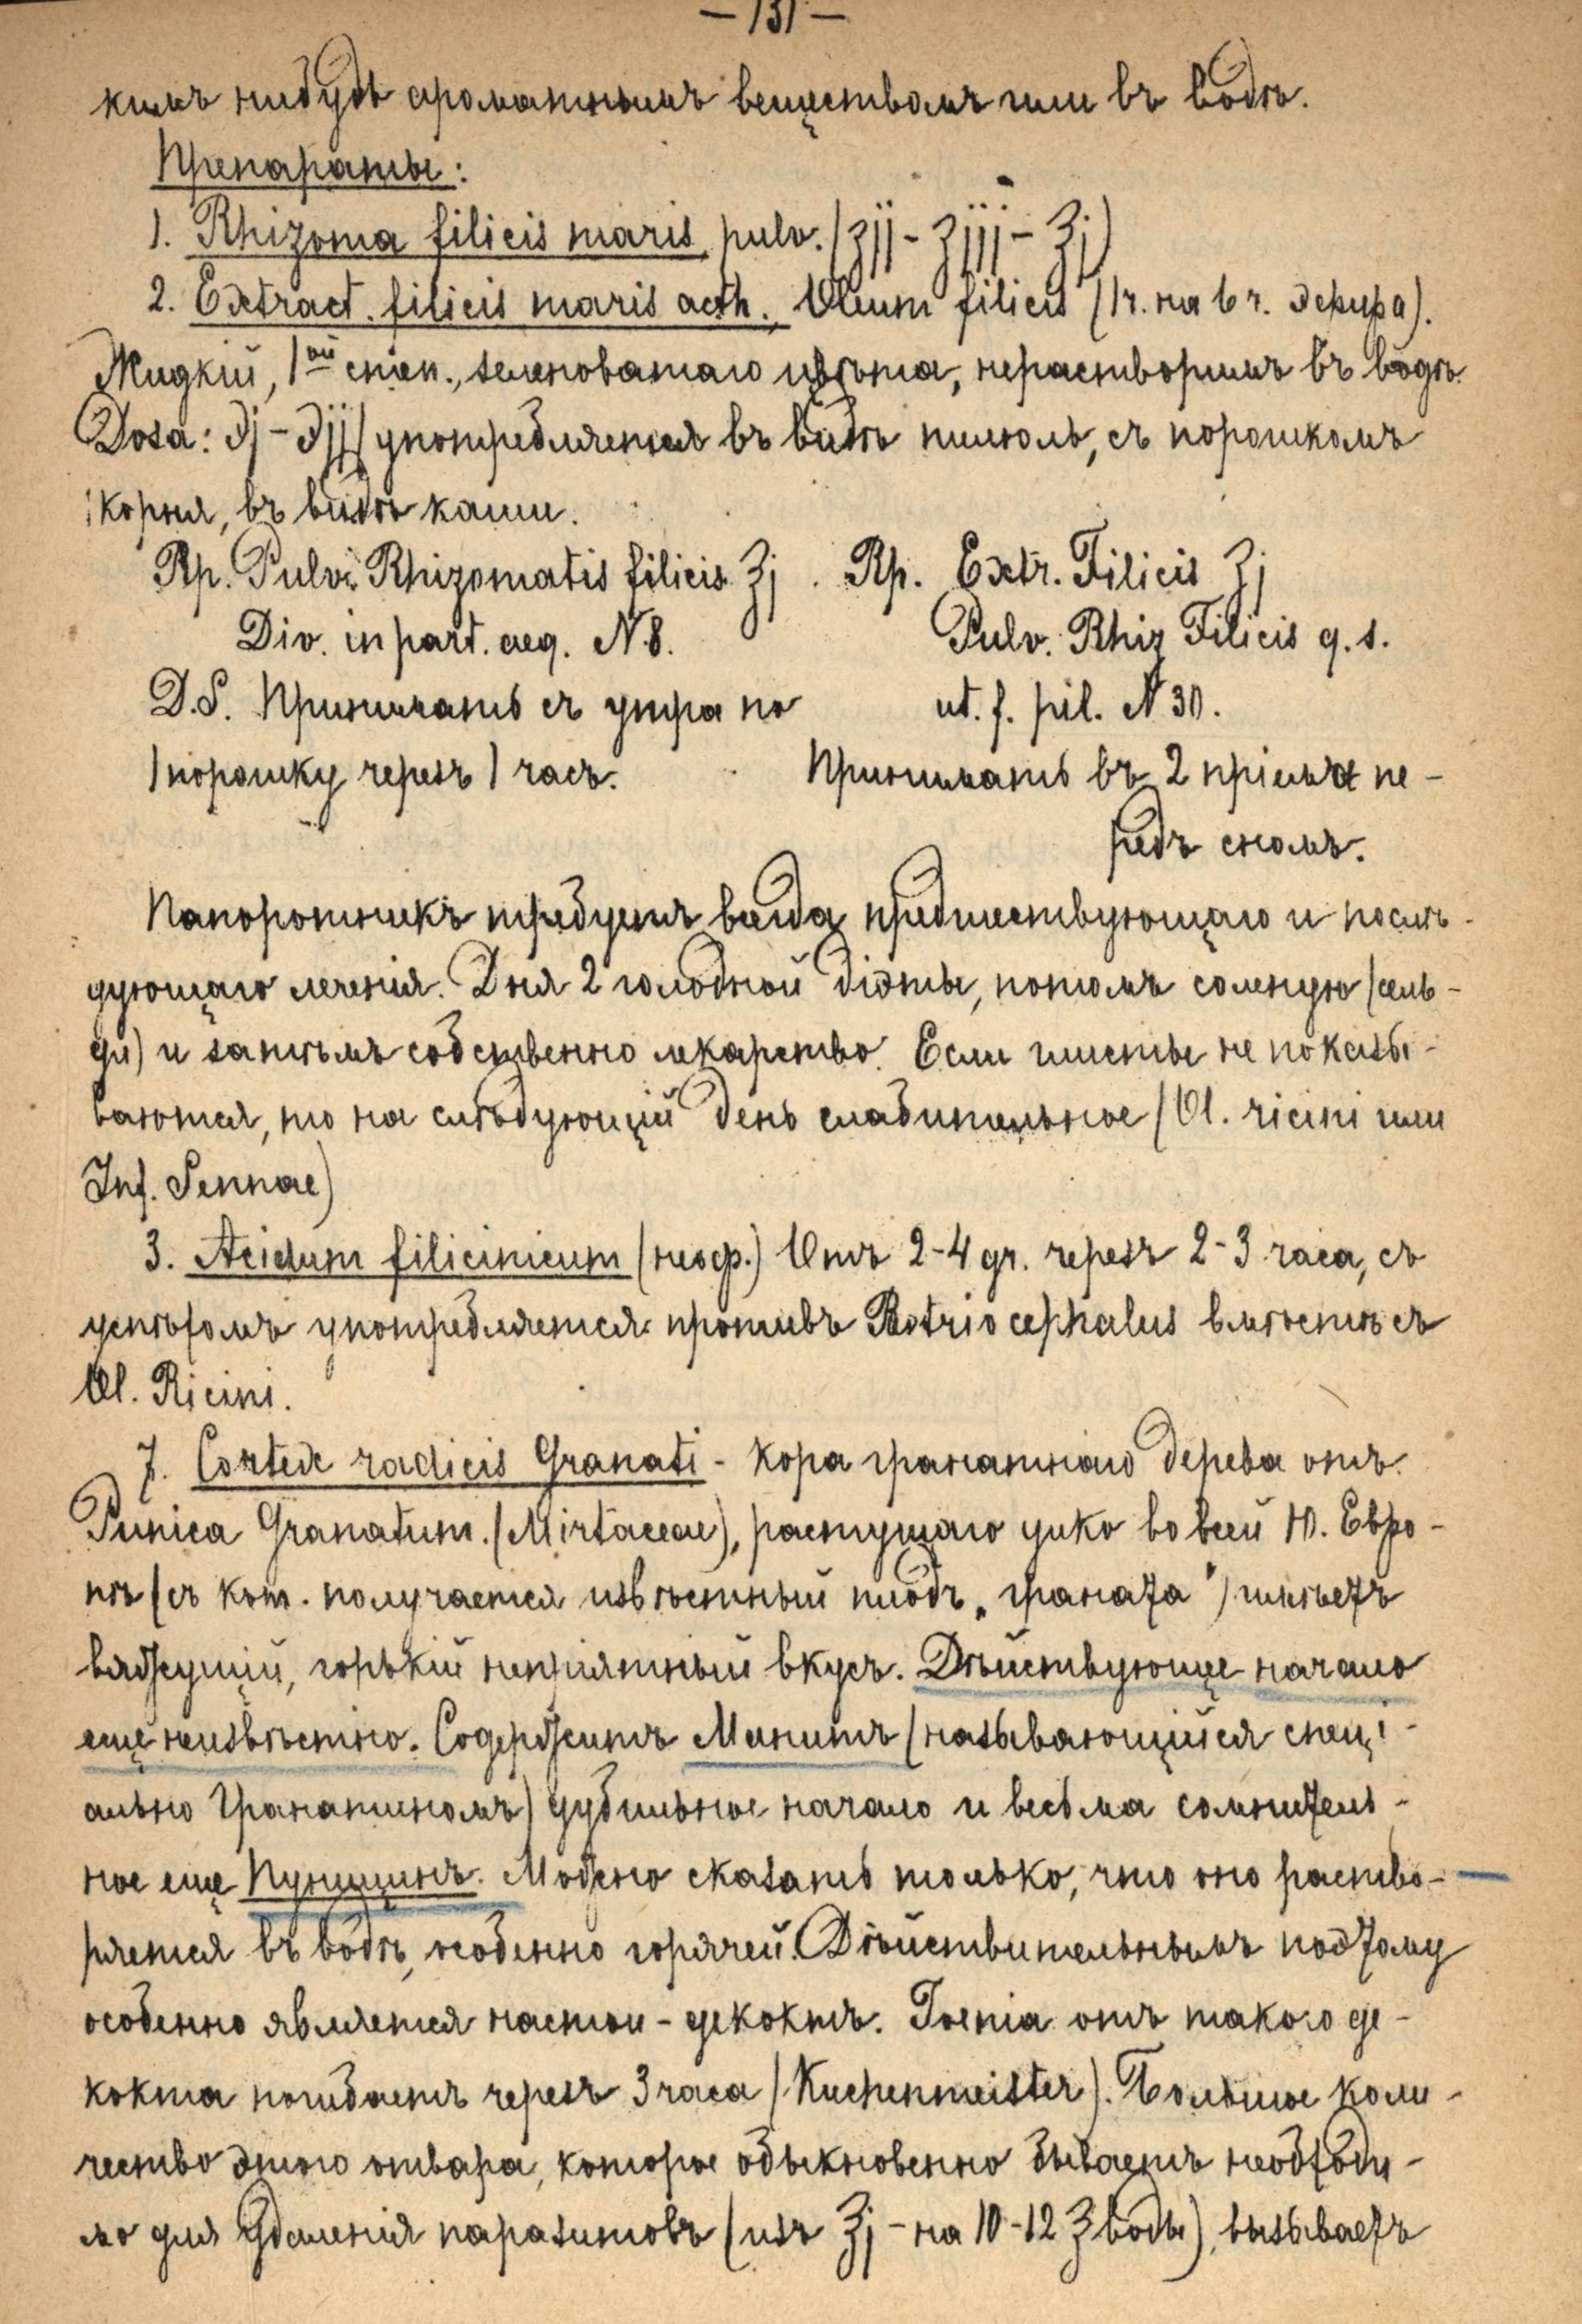 — 131 —
кимъ нибудь ароматнымъ веществомъ или въ водѣ.
Препараты:
1. Rhizoma filicis maris pulv. (ʒjj - ʒjjj - ℥j)
2. Extract. filicis maris aeth., Oleum filicis (1 ч. на 6 ч. эѳира).
Жидкій, 1ой степ., зеленоватаго цвѣта, нерастворимъ въ водѣ.
Dosa: ℈j - ℈jj (употребляется въ видѣ пилюль, съ порошкомъ
корня, въ видѣ каши.
Rp. Pulv. Rhizomatis filicis ℥j. Rp. Extr. Filicis ʒj
Div. in part. aeq. N 8. Pulv. Rhiz Filicis q. s.
D.S. Принимать съ утра по ut. f. pil. N 30.
1 порошку черезъ 1 часъ. Принимать въ 2 пріема пе-
редъ сномъ.
Папоротникъ требуетъ всегда предшествующаго и послѣ-
дующаго леченія. Дня 2 голодной діэты, потомъ соленую (сель-
ди) и затѣмъ собственно лекарство. Если глисты не показы-
ваются, то на слѣдующій день слабительное (Ol. ricini или
Inf. Sennae)
3. Acidum filicinicum (неоф.) Отъ 2-4 gr. черезъ 2-3 часа, съ
успѣхомъ употребляется противъ Botriocephalus вмѣстѣ съ
Ol. Ricini.
7. Cortex radicis Granati - кора гранатнаго дерева отъ
Punica Granatum. (Mirtaceae), растущаго дико во всей Ю. Евро-
пѣ (съ кот. получается извѣстный плодъ „граната") имѣетъ
вяжущій, горькій непріятный вкусъ. Дѣйствующее начало
еще неизвѣстно. Содержитъ Манитъ (называющійся спеці-
ально Гранатиномъ) дубильное начало и весьма сомнитель-
ное еще Пуницинъ. Можно сказать только, что оно раство-
ряется въ водѣ, особенно горячей. Дѣйствительнымъ поэтому
особенно является настои - декоктъ. Toenia отъ такого де-
кокта погибаетъ черезъ 3 часа (Kuchenmeister). Большое коли-
чество этого отвара, которое обыкновенно бываетъ необходи-
мо для удаленія паразитовъ (изъ ℥j - на 10-12 ℥ воды), вызываетъ